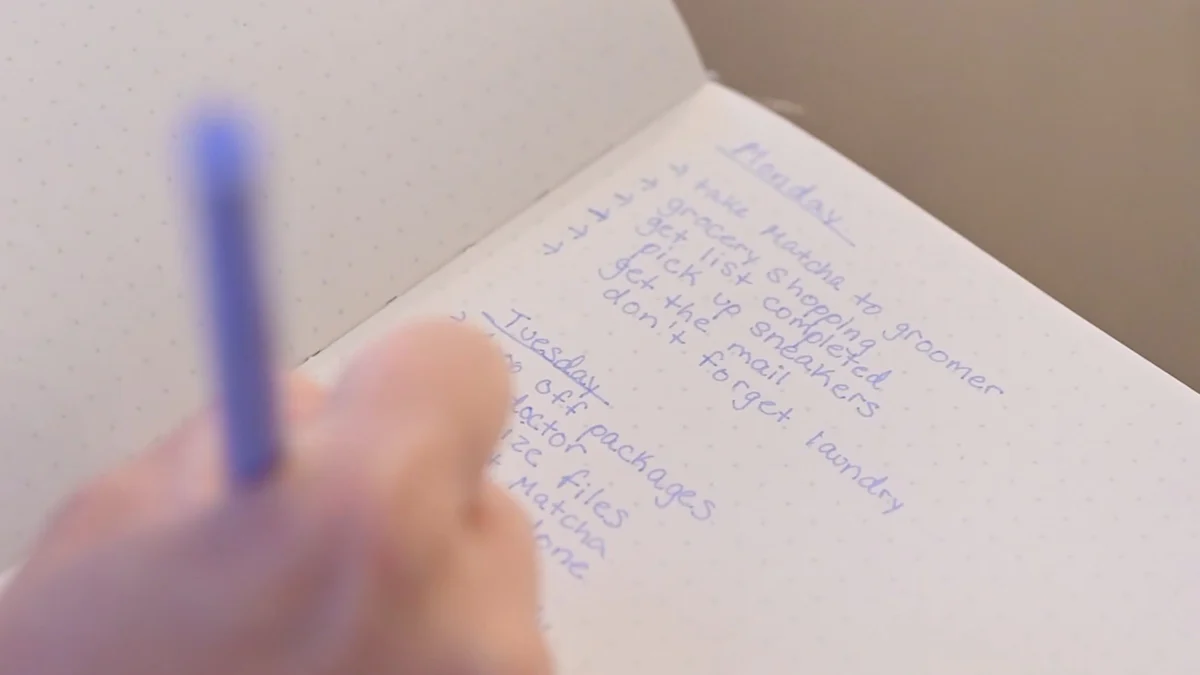 Monday
→ take Matcha to groomer
→ grocery shopping
→ get list completed
→ pick up sneakers
→ get the mail
→ don't forget laundry
Tuesday
→ off packages
doctor
files
Matcha